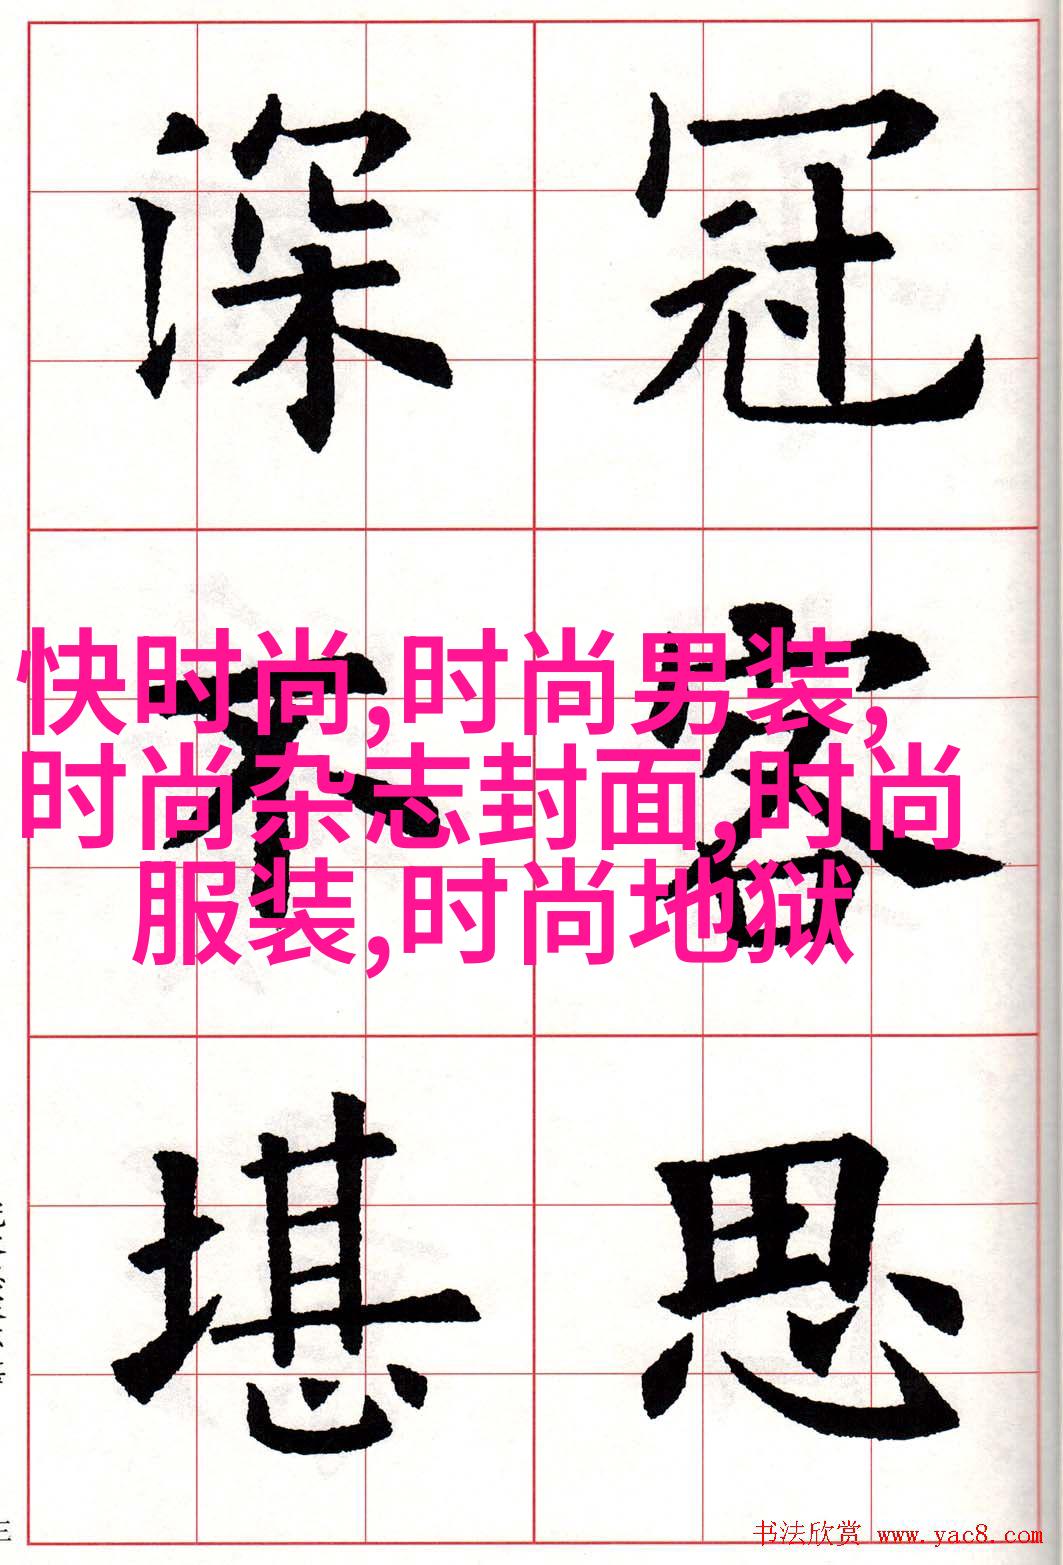 冠容思
深不堪
快时尚,时尚男装,
时尚杂志封面,时尚
服装,时尚地狱
书法欣赏 www.yac8.com